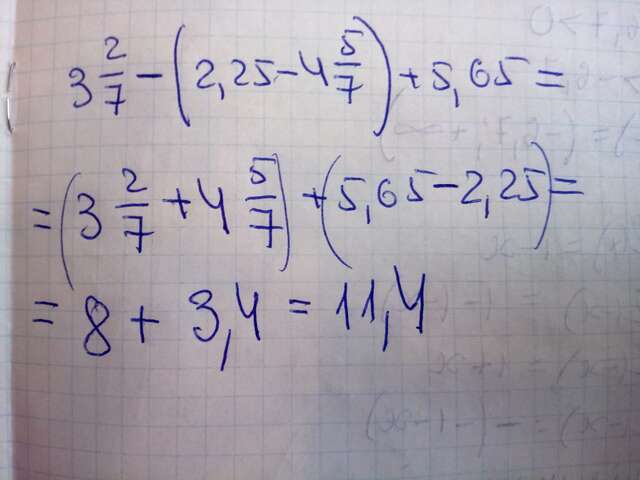 3 2/7 - (2,25 - 4 5/7) + 5,65 =
= (3 2/7 + 4 5/7) + (5,65 - 2,25) =
= 8 + 3,4 = 11,4